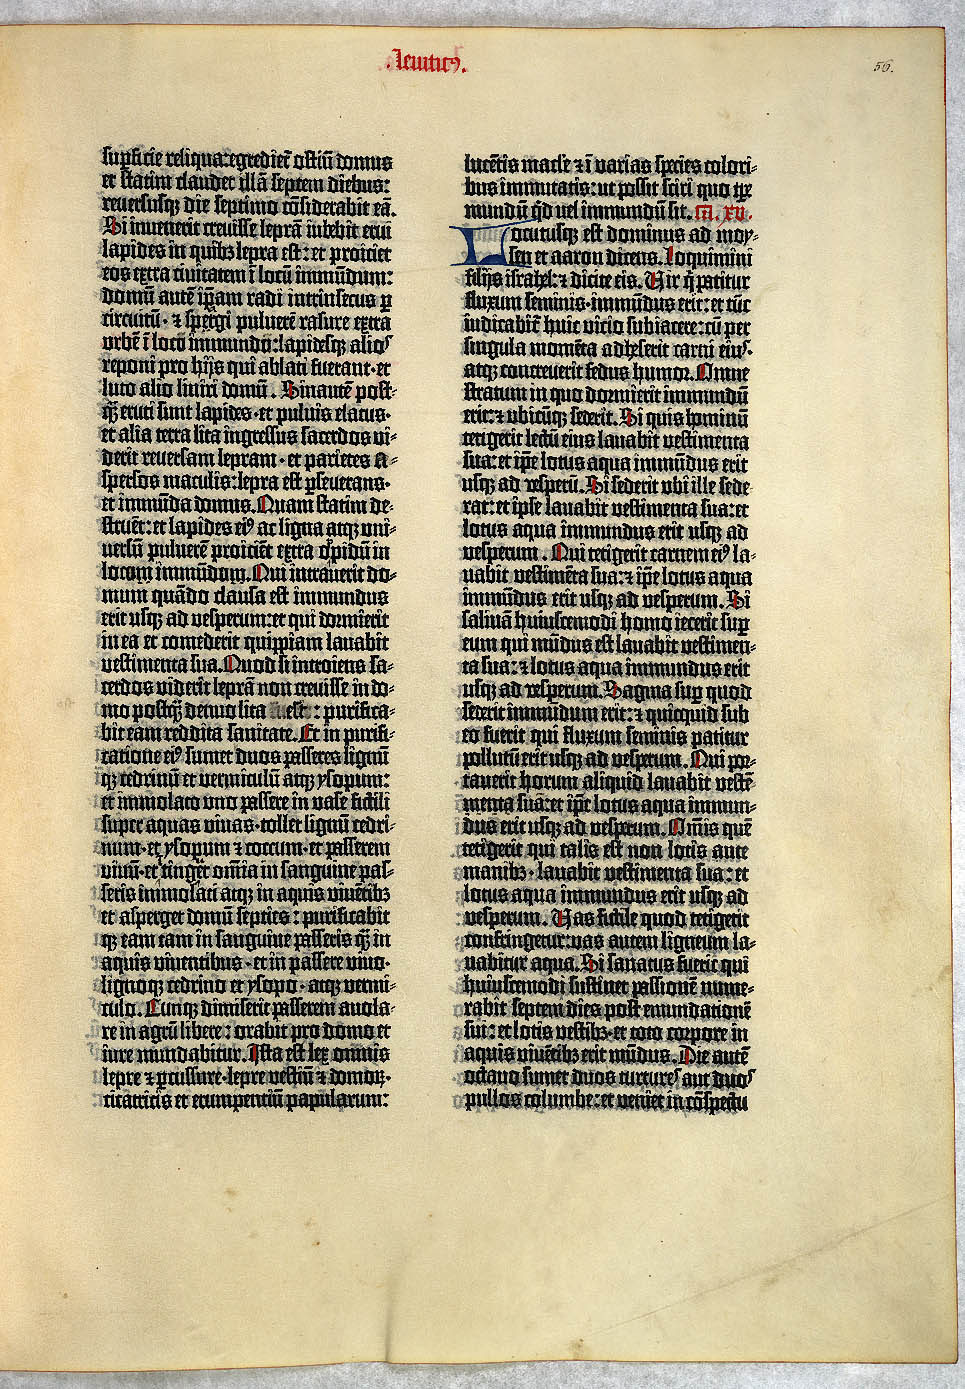 .leuiticꝰ.
56.
suꝑficie reliqua: egrediet᷑ ostiū domus
et statim claudet illā septem diebus:
reuersusqꝫ die septimo cōsiderabit eā.
Si inuenerit creuisse leprā iubebit erui
lapides in quibꝫ lepra est: et proicier
eos extra ciuitatem ī locū immūdum:
domū autē ip̄am radi intrinsecus ꝑ
circuitū· ⁊ spergi puluerē rasure extra
vrbē ī loco immundo: lapidesqꝫ alios
reponi pro hijs qui ablati fuerant· et
luto alio liniri domū. Sinautē post-
q̄ȝ eruti sunt lapides· et puluis elatus·
et alia terra lita ingressus sacerdos vi-
derit reuersam lepram· et parietes a-
spersos maculis: lepra est ꝑseuerans·
et immūda domus. Quam statim de-
struēt: et lapides eiꝰ ac ligna atqꝫ vni-
uersū puluerē proiciēt extra opidū in
locum immūdum. Qui intrauerit do-
mum quādo clausa est immundus
erit usqꝫ ad vesperum: et qui dormierit
in ea et comederit quippiam lauabit
vestimenta sua. Quod si introiens sa-
cerdos viderit leprā non creuisse in do-
mo postq̄ȝ denuo lita est: purifica-
bit eam reddita sanitate. Et in purifi-
catione eiꝰ sumet duos passeres lignū
qꝫ cedrinū et vermiculū atqꝫ ysopum:
et immolato vno passere in vase fictili
super aquas viuas· tollet lignū cedri-
num· et ysopum ⁊ coccum· et passerem
viuū· et tinget omīa in sanguine pas-
seris immolati atqꝫ in aquis viuētibꝫ
et asperget domū septies: purificabit
qꝫ eam tam in sanguine passeris q̄ȝ in
aquis viuentibus· et in passere viuo·
lignoqꝫ cedrino et ysopo· atqꝫ vermi-
culo. Cunqꝫ dimiserit passerem auola-
re in agrū libere: orabit pro domo et
iure mundabitur. Ista est lex omnis
lepre ⁊ ꝑcussure· lepre vestiū ⁊ domoꝝ·
cicatricis et erumpentiū papularum:
lucētis macle ⁊ ī varias species colori-
bus immutatis: ut possit sciri quo tꝑe
mundū q̄d vel immundū sit. ca. xv.
Locutusqꝫ est dominus ad moy-
sen et aaron dicens. Loquimini
filijs israhel: ⁊ dicite eis. Uir q̄ patitur
fluxum seminis· immūdus erit: et tūc
iudicabit᷑ huic vicio subiacere: cū per
singula momēta adheserit carni eiꝰ·
atqꝫ concreuerit fedus humor. Omne
stratum in quo dormierit immundū
erit: ⁊ vbicūqꝫ sederit. Si quis hominū
tetigerit lectū eius lauabit vestimenta
sua: et ip̄e lotus aqua immūdus erit
usqꝫ ad vesperū. Si sederit vbi ille sede
rat: et ipse lauabit vestimenta sua: et
lotus aqua immundus erit usqꝫ ad
vesperum. Qui tetigerit carnem eiꝰ la-
uabit vestimēta sua: ⁊ ip̄e lotus aqua
immūdus erit usqꝫ ad vesperum. Si
saliuā huiuscemodi homo iecerit suꝑ
eum qui mūdus est lauabit vestimen-
ta sua: ⁊ lotus aqua immundus erit
usqꝫ ad vesperum. Sagma suꝑ quod
sederit immundum erit: ⁊ quicquid sub
eo fuerit qui fluxum seminis patitur
pollutū erit usqꝫ ad vesperum. Qui por-
tauerit horum aliquid lauabit vestē-
menta sua: et ip̄e lotus aqua immun-
dus erit usqꝫ ad vesperum. Om̄is quē
tetigerit qui talis est non lotis ante
manibꝫ· lauabit vestimenta sua: et
lotus aqua immundus erit usqꝫ ad
vesperum. Uas fictile quod tetigerit
confringetur: vas autem ligneum la-
uabitur aqua. Si sanatus fuerit qui
huiuscemodi sustinet passionē nume-
rabit septem dies post emundationē
sui: et lotis vestibꝫ· et toto corpore in
aquis viuētibꝫ erit mūdus. Die autē
octauo sumet duos turtures aut duos
pullos columbe: et veniet in cōspectu